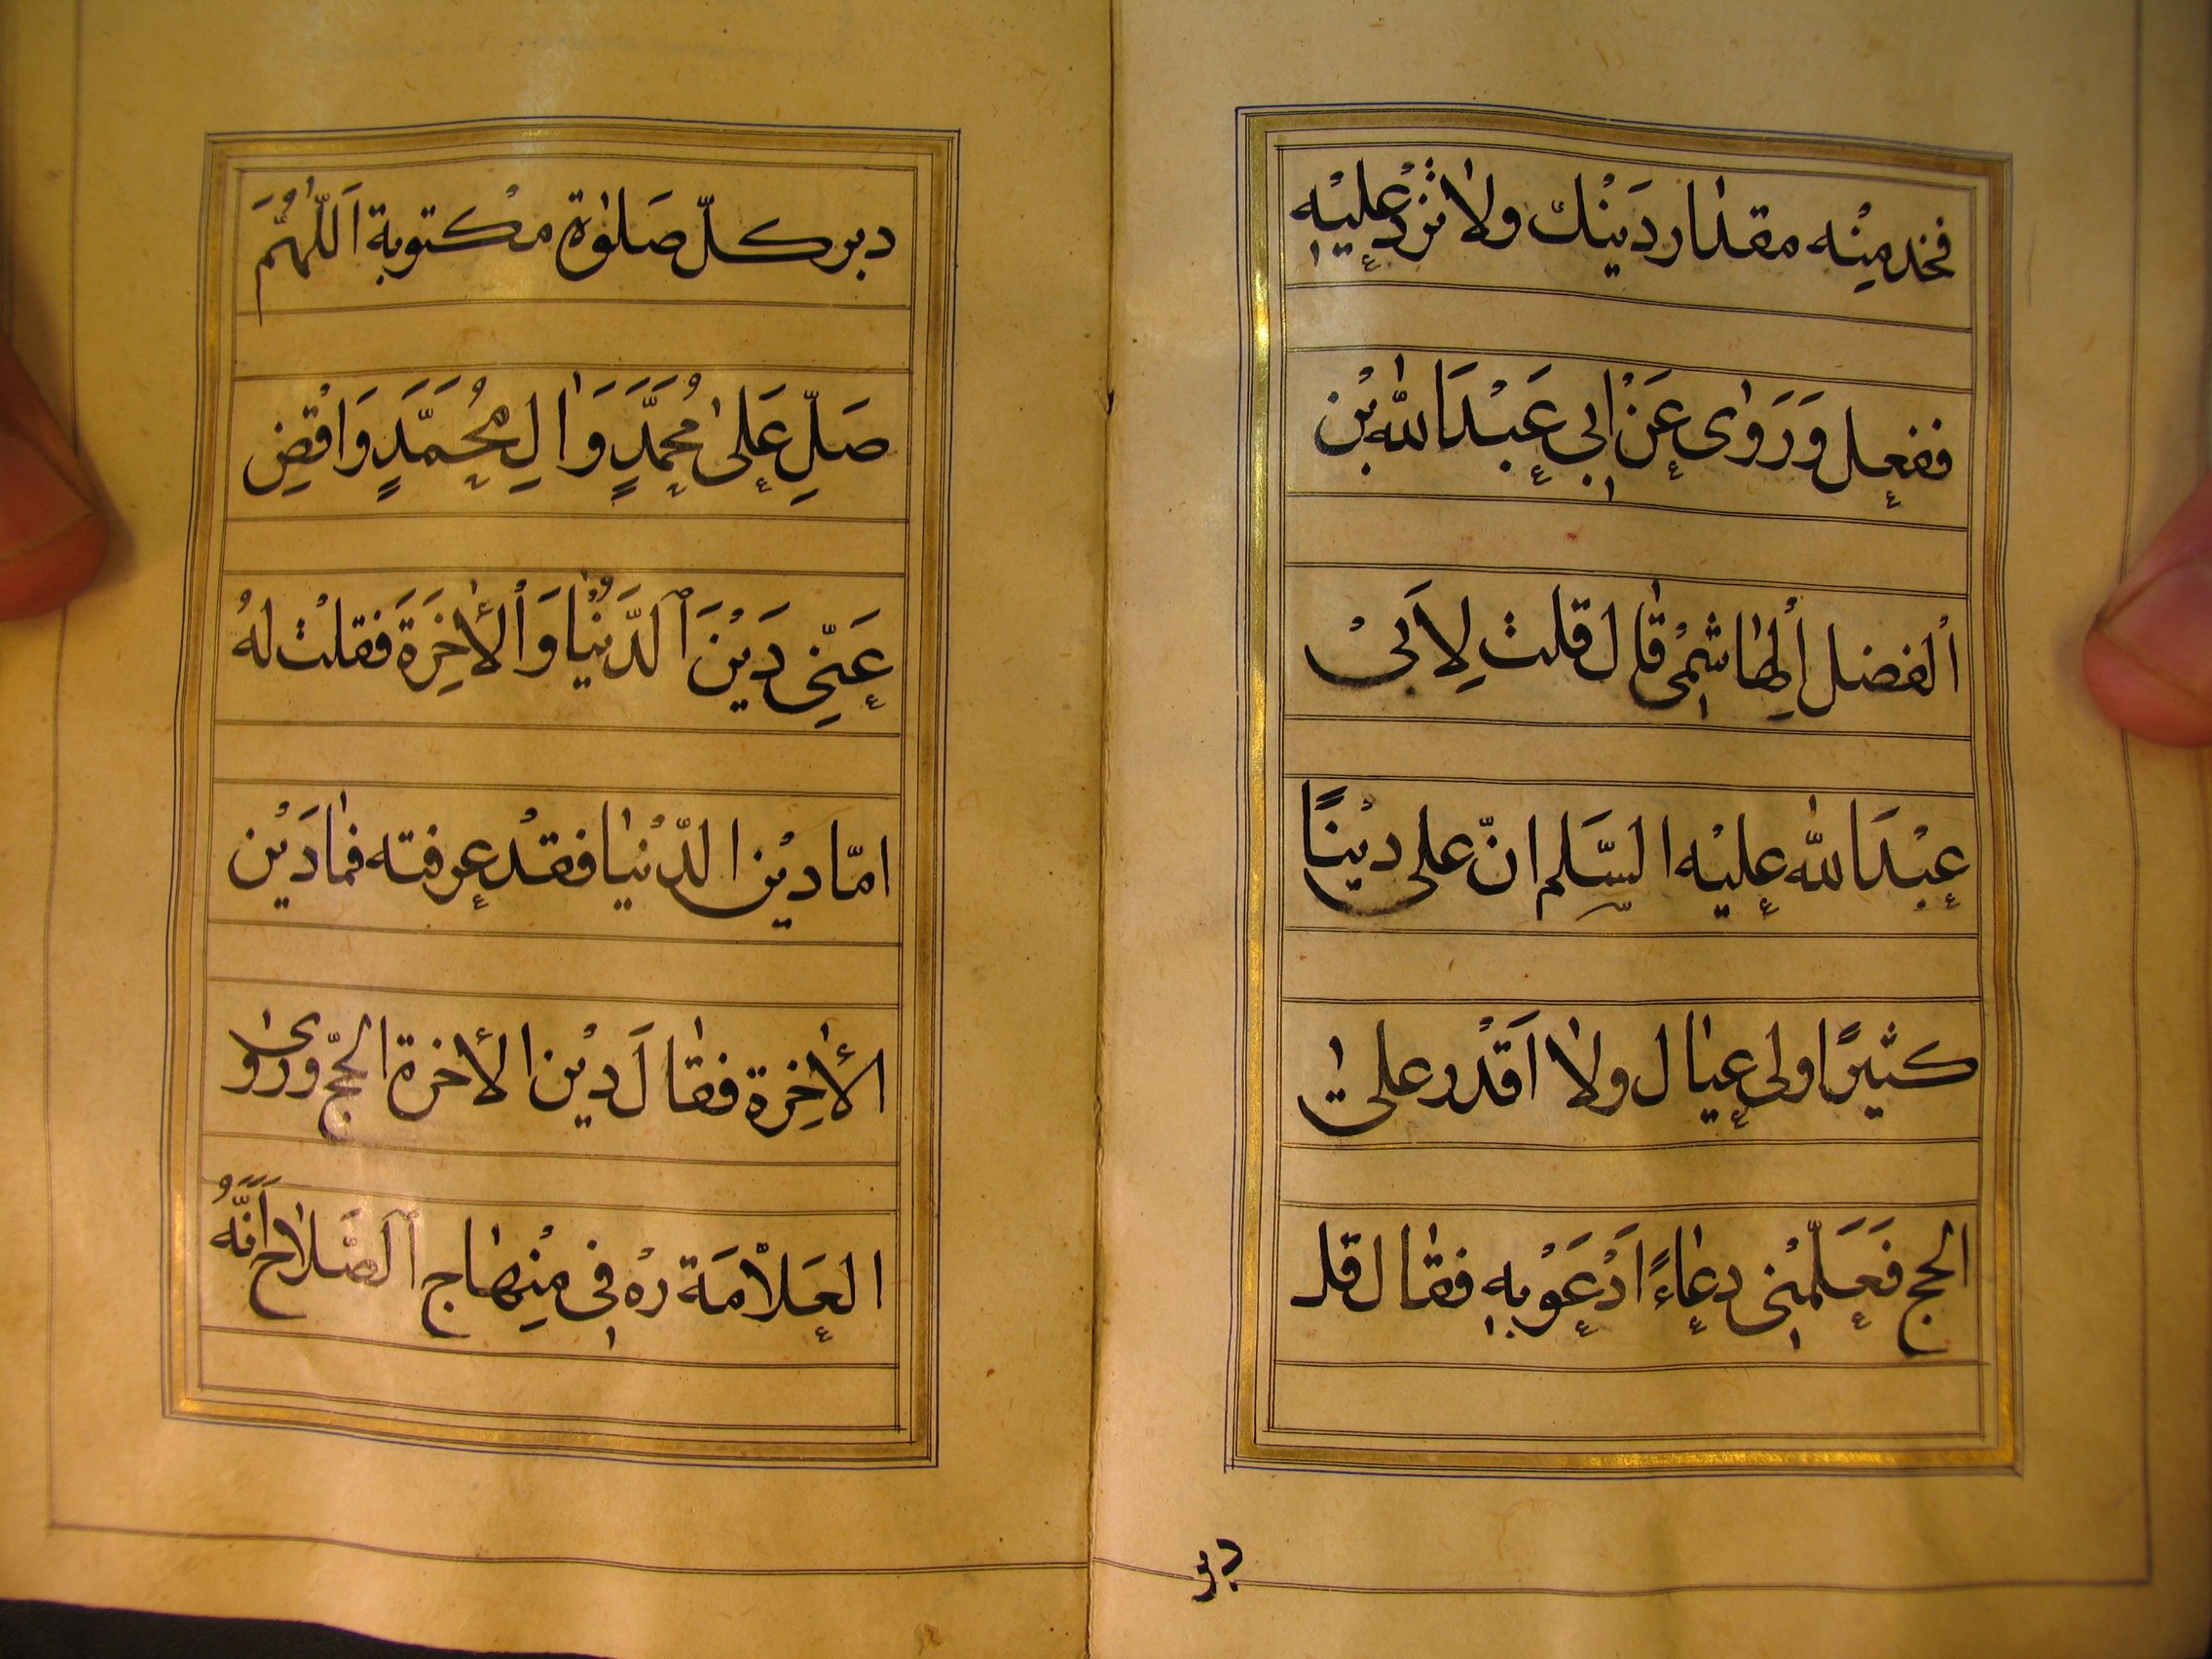 فخذ مِنْه مقدار دَيْنك ولا تزدْ عليْهِ
ففعل وَرَوىٰ عَنْ ابي عَبْدَ اللّٰه بْن
الفضل الهٰاشمىْ قٰال قلت لِاَبىْ
عبْدَ اللّٰه عليْه السَّلم انّ على ديْنًا
كثيرًا ولى عيٰال ولا اَقْدر علىٰ
الحج فَعَلّمْنى دعٰاءً اَدْعَوْ بِهِ فقٰال قل
دبر
دبر كلّ صَلوٰة مكْتوبة اَللّٰهُمَّ
صَلِّ عَلىٰ مُحَمَّدٍ وَاٰلِ مُحَمَّدٍ وَاقْضِ
عَنّى دَيْنَ الدُّنْيٰا وَالْأخِرَةَ فقلْت لهُ
امّا ديْن الدّنْيٰا فقدْ عرفته فمٰا دَيْن
الأخِرة فقٰالَ ديْن الأخرة الحجّ ورَوىٰ
العَلاّمَة رهْ فى مِنْهٰاج الصَّلاٰح اَنَّهُ